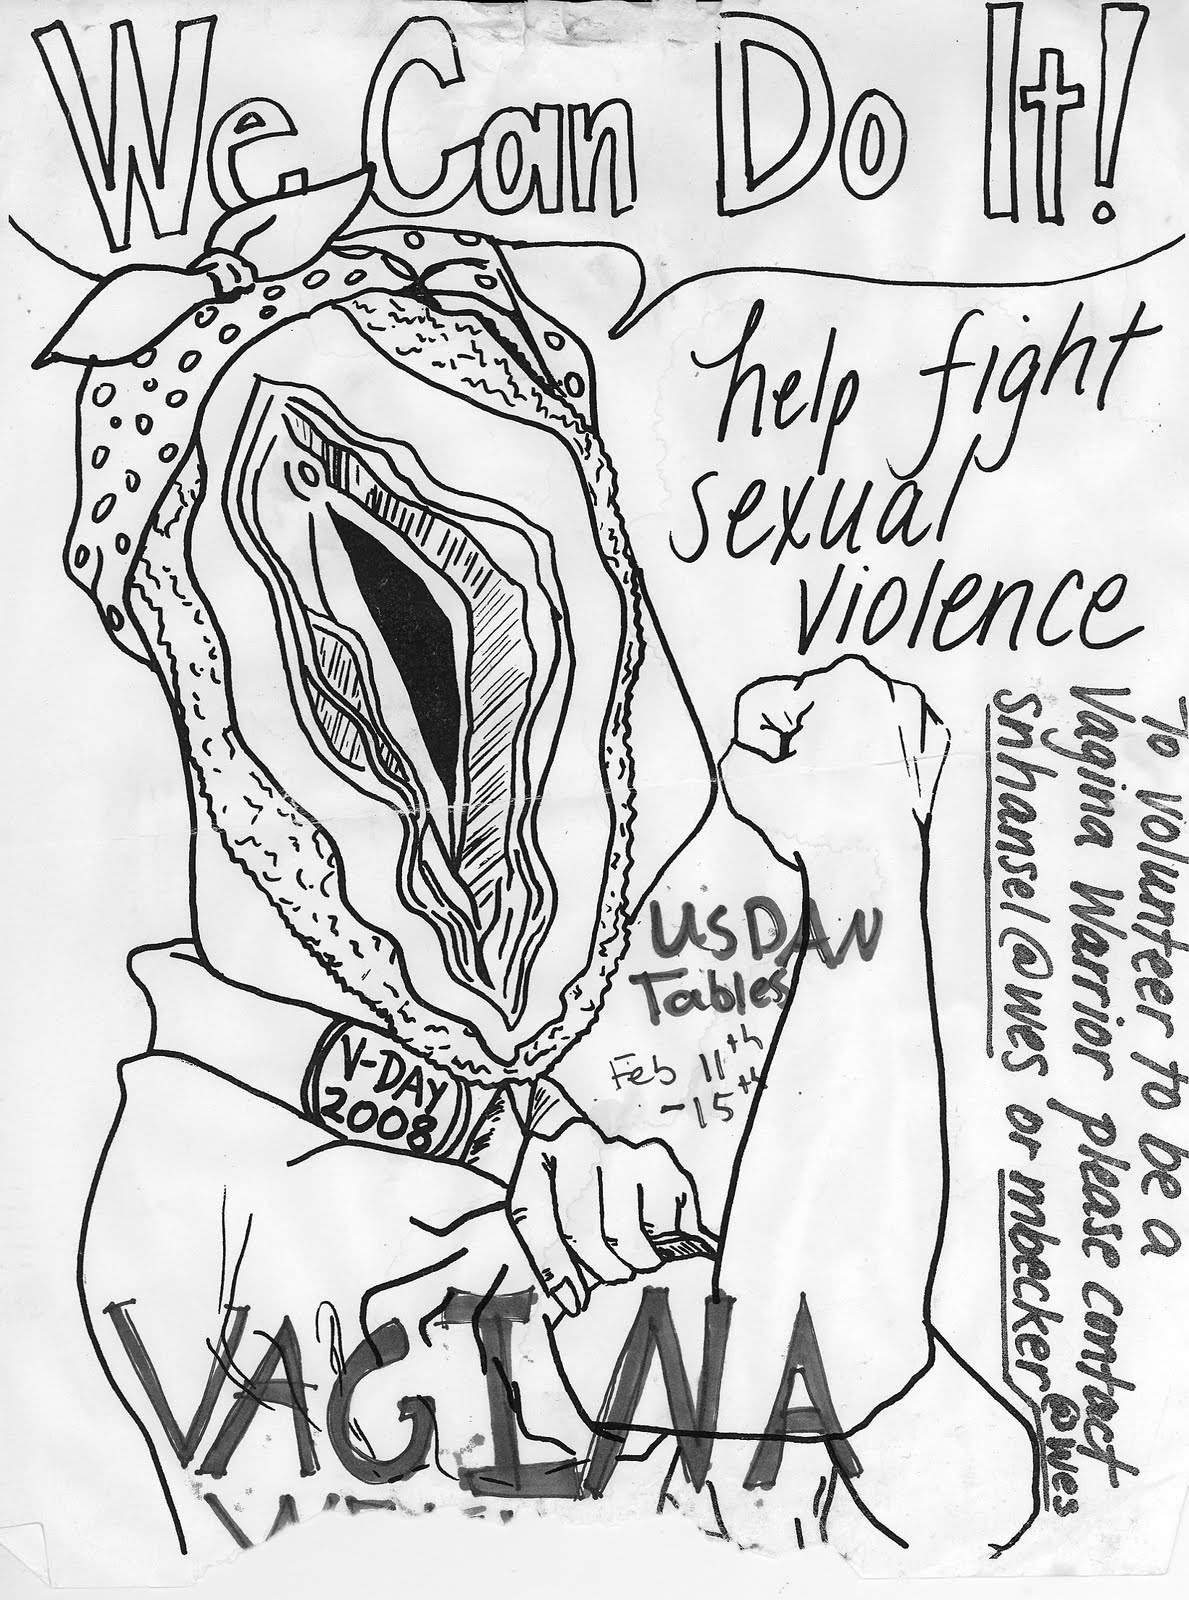 We Can Do It!
help fight
sexual
violence
To volunteer to be a
Vagina Warrior please contact
snhansel@wes or mbecker@wes
USDAN
Tables
Feb 11th
-15th
V-DAY
2008
VAGINA